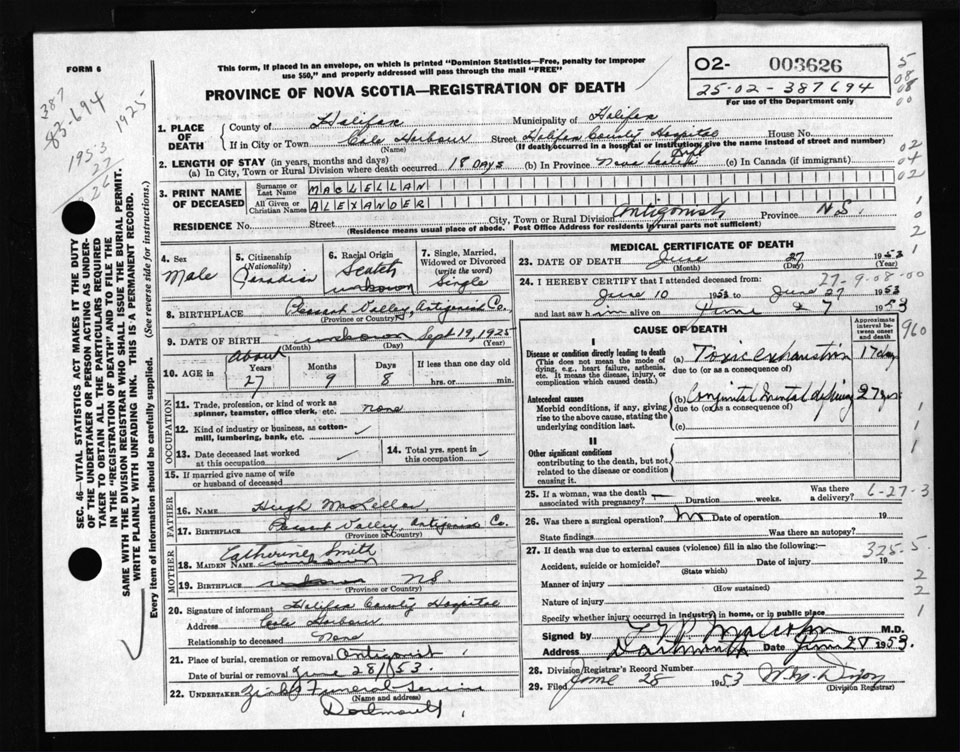 FORM 6
This form, if placed in an envelope, on which is printed "Dominion Statistics—Free, penalty for improper
use $50," and properly addressed will pass through the mail "FREE"
PROVINCE OF NOVA SCOTIA—REGISTRATION OF DEATH
02- 003626
25-02-387694
For use of the Department only
387
83-694
1925
1953
27
26
5
08
08
00
02
04
02
SEC. 46—VITAL STATISTICS ACT MAKES IT THE DUTY
OF THE UNDERTAKER OR PERSON ACTING AS UNDER-
TAKER TO OBTAIN ALL THE PARTICULARS REQUIRED
IN THE "REGISTRATION OF DEATH" AND TO FILE THE
SAME WITH THE DIVISION REGISTRAR WHO SHALL ISSUE THE BURIAL PERMIT.
WRITE PLAINLY WITH UNFADING INK. THIS IS A PERMANENT RECORD.
Every item of information should be carefully supplied. (See reverse side for instructions.)
1. PLACE OF DEATH County of Halifax Municipality of Halifax
If in City or Town Cole Harbour Street Halifax County Hospital House No.
(Name) (If death occurred in a hospital or institution, give the name instead of street and number)
2. LENGTH OF STAY (in years, months and days)
(a) In City, Town or Rural Division where death occurred 18 Days (b) In Province Nova Scotia Life (c) In Canada (if immigrant)
3. PRINT NAME OF DECEASED Surname or Last Name MACLELLAN
All Given or Christian Names ALEXANDER
RESIDENCE No. Street City, Town or Rural Division Antigonish Province N.S.
(Residence means usual place of abode. Post Office Address for residents in rural parts not sufficient)
4. Sex Male
5. Citizenship (Nationality) Canadian
6. Racial Origin Scotch unknown
7. Single, Married, Widowed or Divorced (write the word) Single
8. BIRTHPLACE Pleasant Valley, Antigonish Co.
(Province or Country)
9. DATE OF BIRTH unknown Sept 19, 1925
(Month) (Day) (Year)
10. AGE in About Years 27 Months 9 Days 8 If less than one day hrs. or min.
OCCUPATION
11. Trade, profession, or kind of work as spinner, teamster, office clerk, etc. none
12. Kind of industry or business, as cotton-mill, lumbering, bank, etc.
13. Date deceased last worked at this occupation
14. Total yrs. spent in this occupation
15. If married give name of wife or husband of deceased
FATHER
16. NAME Hugh McLellan
17. BIRTHPLACE Pleasant Valley, Antigonish Co.
(Province or Country)
MOTHER
18. MAIDEN NAME Catherine Smith unknown
19. BIRTHPLACE unknown NS
(Province or Country)
20. Signature of informant Halifax County Hospital
Address Cole Harbour
Relationship to deceased None
21. Place of burial, cremation or removal Antigonish
Date of burial or removal June 28/53.
22. UNDERTAKER Funeral Service
(Name and address)
Dartmouth
MEDICAL CERTIFICATE OF DEATH
23. DATE OF DEATH June 27 1953
(Month) (Day) (Year)
27-9-08-00
24. I HEREBY CERTIFY that I attended deceased from:
June 10 1953 to June 27 1953
and last saw him alive on June 27 1953
CAUSE OF DEATH
Approximate interval between onset and death
960
I
Disease or condition directly leading to death
(This does not mean the mode of dying, e.g., heart failure, asthenia, etc. It means the disease, injury, or complication which caused death.)
(a) Toxic exhaustion 17 days
due to (or as a consequence of)
Antecedent causes
Morbid conditions, if any, giving rise to the above cause, stating the underlying condition last.
(b) Congenital mental deficiency 27 yrs
due to (or as a consequence of)
(c)
II
Other significant conditions
contributing to the death, but not related to the disease or condition causing it.
25. If a woman, was the death associated with pregnancy? Duration weeks. Was there a delivery?
6-27-3
26. Was there a surgical operation? No Date of operation 19
State findings Was there an autopsy?
27. If death was due to external causes (violence) fill in also the following:—
325-5
Accident, suicide or homicide? Date of injury 19
(State which)
Manner of injury
(How sustained)
Nature of injury
Specify whether injury occurred in industry, in home, or in public place
Signed by Malcolm M.D.
Address Dartmouth Date June 28 1953.
28. Division Registrar's Record Number
29. Filed June 28 1953
(Division Registrar)